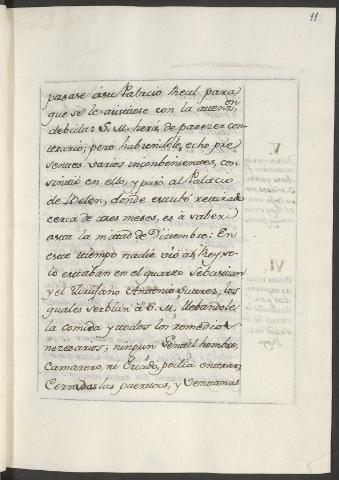 11
pasase á su Palacio Real para
que se le asistiese con la atenn.on
debida: S. M. herá de parezer con
trario; pero habiendole echo pre
sentes varios inconbenientes, con
sintió en ello, y pasó al Palacio
de Belen, donde estubó retirado
cerca de tres meses, es á saber
asta la mitad de Diziembre: En
este tiempo nadie vió al Rey, so
lo estaban en el quarto Sebastian
y el Zirujano Antonio Suarez, los
quales serbian á S. M. llebandole
la comida y todos los remedios
nezesarios; ningun Gentil hombre,
Camarero, ni Criado, podia entrar;
Cerradas las puertas, y Ventanas
V.
VI.